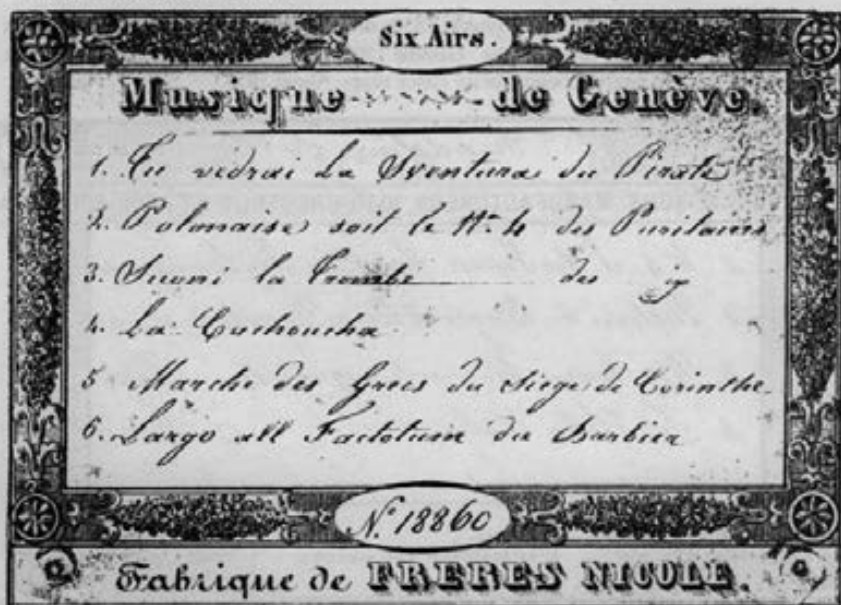 Six Airs.
Musique de Genève.
1. Tu vedrai La Sventura du Pirate
2. Polonaise soit le No. 4 des Puritains
3. Suoni la Trombe des
4. La Cachoucha
5 Marche des Grecs du Siege de Corinthe
6. Largo all Factotum du Barbier
No. 18860
Fabrique de FRERES NICOLE.